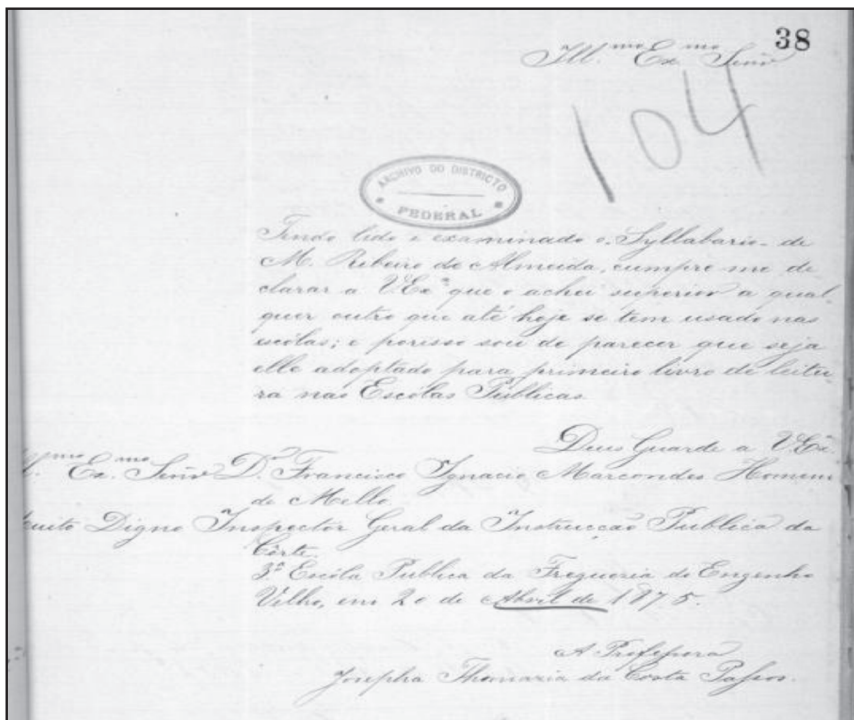 38
Ill.mo Ex.mo Senr
104
ARCHIVO DO DISTRICTO
FEDERAL
Tendo lido e examinado o Syllabario de
M. Ribeiro de Almeida, cumpre me de
clarar a V Exa que o achei superior a qual
quer outro que até hoje se tem usado nas
escólas; e porisso sou de parecer que seja
elle adoptado para primeiro livro de leitu
ra nas Escólas Públicas.
Deus Guarde a V Exa
Ex.mo Senr Dr. Francisco Ignacio Marcondes Homem
de Mello
Muito Digno Inspector Geral da Instrucção Publica da
Côrte.
3ª Escóla Publica da Freguezia do Engenho
Velho, em 20 de Abril de 1875.
A Professora
Josepha Thomazia da Costa Passos.